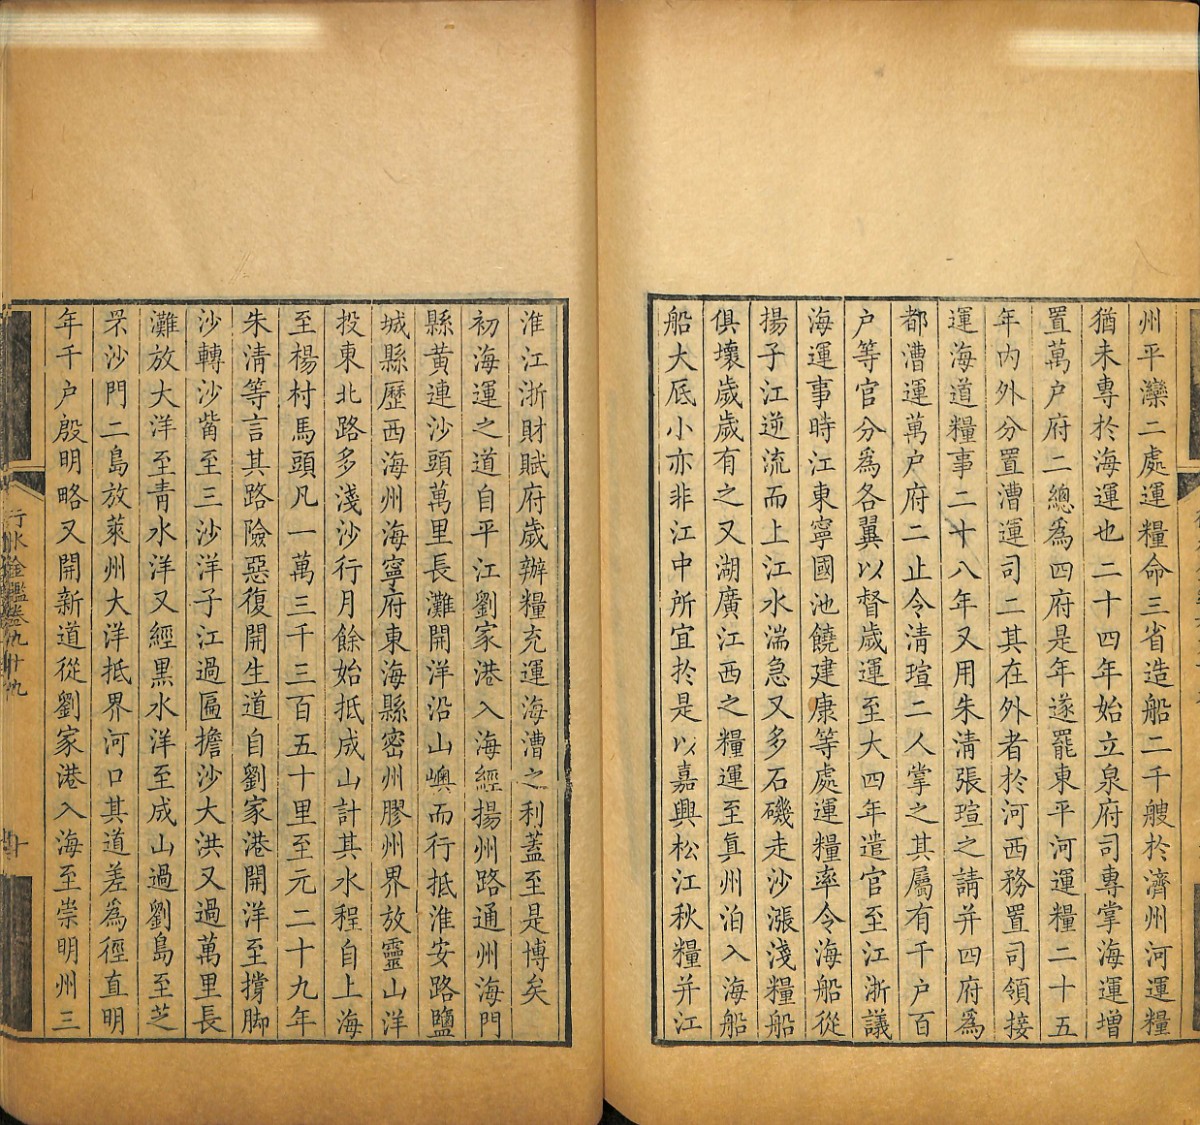 州平灤二處運糧命三省造船二千艘於濟州河運糧
猶未專於海運也二十四年始立泉府司專掌海運增
置萬户府二總爲四府是年遂罷東平河運糧二十五
年內外分置漕運司二其在外者於河西務置司領接
運海道糧事二十八年又用朱淸張瑄之請并四府爲
都漕運萬户府二止令淸瑄二人掌之其屬有千户百
户等官分爲各翼以督歲運至大四年遣官至江浙議
海運事時江東寧國池饒建康等處運糧率令海船從
揚子江逆流而上江水湍急又多石磯走沙漲淺糧船
俱壞歲歲有之又湖廣江西之糧運至真州泊入海船
船大底小亦非江中所宜於是以嘉興松江秋糧并江
淮江浙財賦府歲辦糧充運海漕之利蓋至是博矣
初海運之道自平江劉家港入海經揚州路通州海門
縣黃連沙頭萬里長灘開洋沿山嶼而行抵淮安路鹽
城縣歷西海州海寧府東海縣密州膠州界放靈山洋
投東北路多淺沙行月餘始抵成山計其水程自上海
至楊村馬頭凡一萬三千三百五十里至元二十九年
朱淸等言其路險惡復開生道自劉家港開洋至撐脚
沙轉沙觜至三沙洋子江過匾擔沙大洪又過萬里長
灘放大洋至靑水洋又經黑水洋至成山過劉島至芝
罘沙門二島放萊州大洋抵界河口其道差爲徑直明
年千户殷明略又開新道從劉家港入海至崇明州三
行水金鑑卷九十九